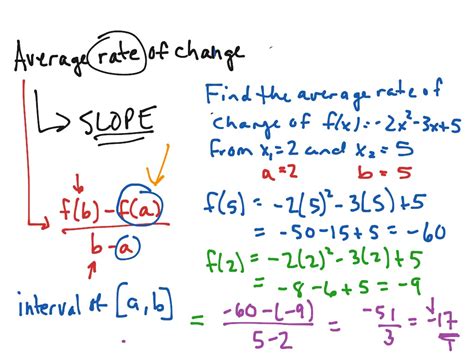 Average rate of change
SLOPE
f(b) - f(a)
b - a
interval of [a, b]
Find the average rate of
change of f(x) = -2x² - 3x + 5
from x₁ = 2 and x₂ = 5
a = 2 b = 5
f(5) = -2(5)² - 3(5) + 5
= -50 - 15 + 5 = -60
f(2) = -2(2)² - 3(2) + 5
= -8 - 6 + 5 = -9
= -60 - (-9) = -51 = -17
5 - 2 3 1